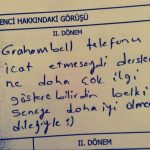 ENCİ HAKKINDAKİ GÖRÜŞÜ
II. DÖNEM
Grahambell telefonu
icat etmeseydi dersler
ne daha çok ilgi
gösterebilirdin belki
Seneye daha iyi olman
dileğiyle :)
II. DÖNEM